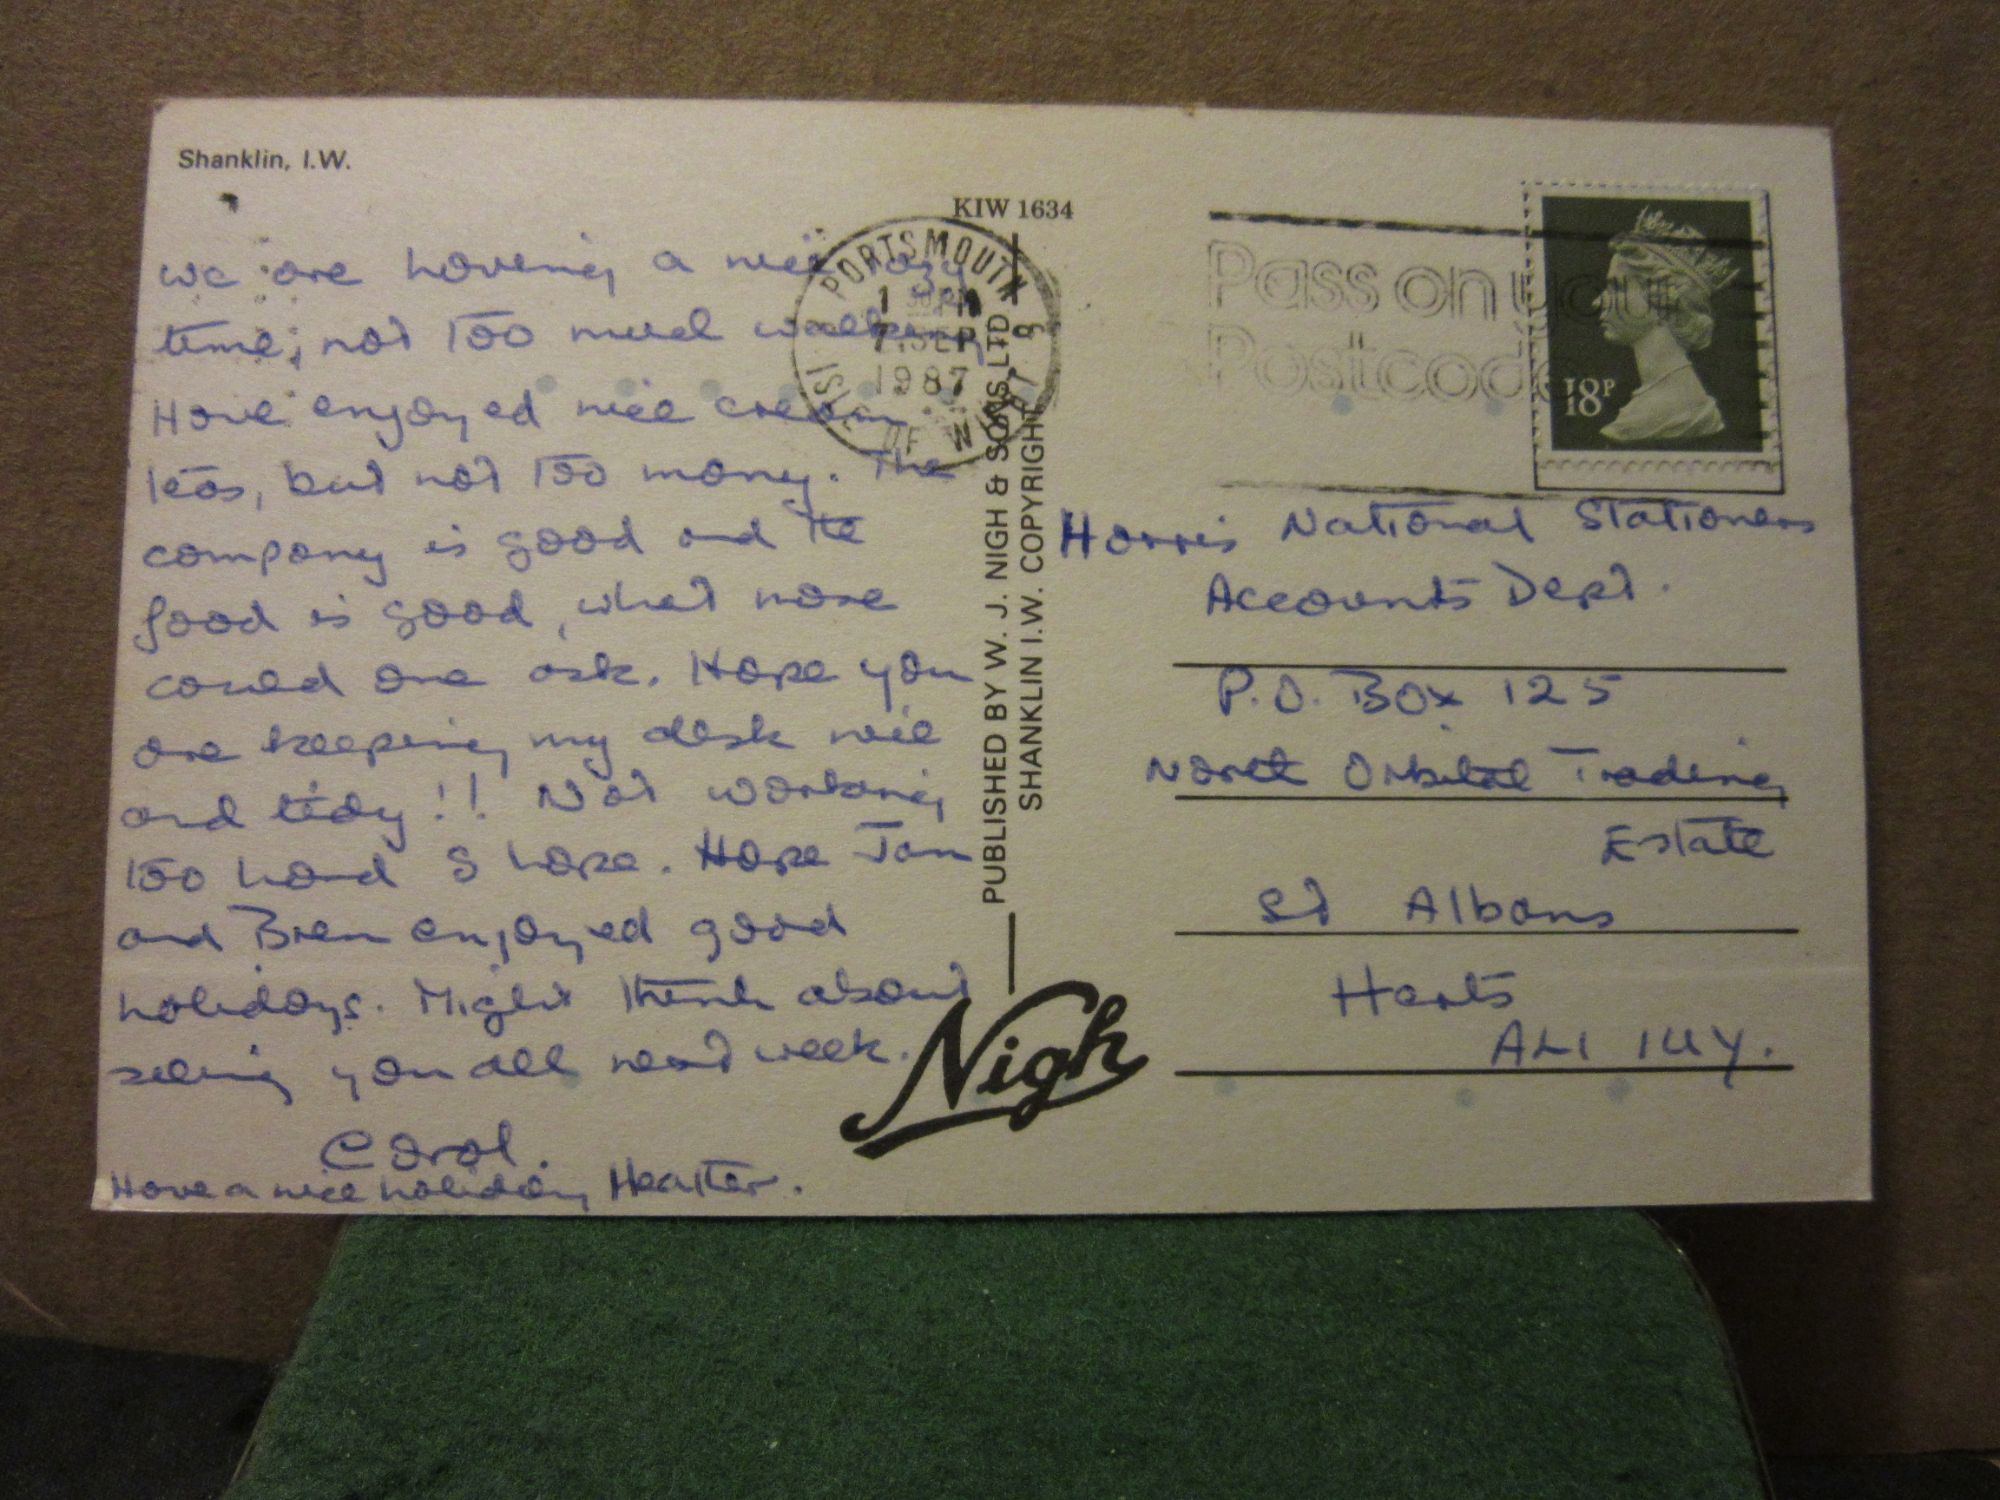 Shanklin, I.W.
KIW 1634
We are having a nice lazy
time, not too much walking
Have enjoyed nice cream
teas, but not too many. The
company is good and the
food is good, what more
could one ask. Hope you
are keeping my desk nice
and tidy!! Not working
too hard I hope. Hope Jan
and Bren enjoyed good
holidays. Might think about
seeing you all next week.
Carol.
Have a nice holiday Heather.
PORTSMOUTH
7 SEP
1987
ISLE OF WIGHT
PUBLISHED BY W. J. NIGH & SONS LTD
SHANKLIN I.W. COPYRIGHT
Nigh
Pass on your
Postcode
18P
Harris National Stationers
Accounts Dept.
P.O. Box 125
North Orbital Trading
Estate
St Albans
Herts
AL1 1UY.